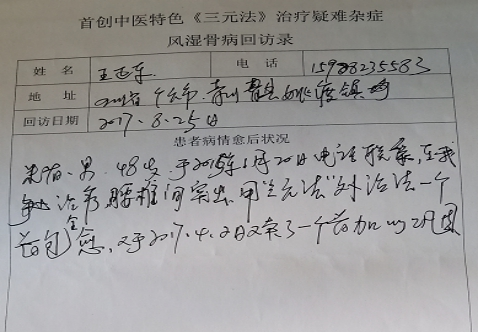 首创中医特色《三元法》治疗疑难杂症
风湿骨病回访录
姓 名 王 东 电 话 15988235583
地 址 四川省 广元市 青川县 姚渡镇
回访日期 2017.8.25日
患者病情愈后状况
男.48岁.于2015年 月20日电话联系,至我
治 腰椎间突出.用“三元法”外治法一个
全愈,又于2017.4.2日又 了一个 加以巩固